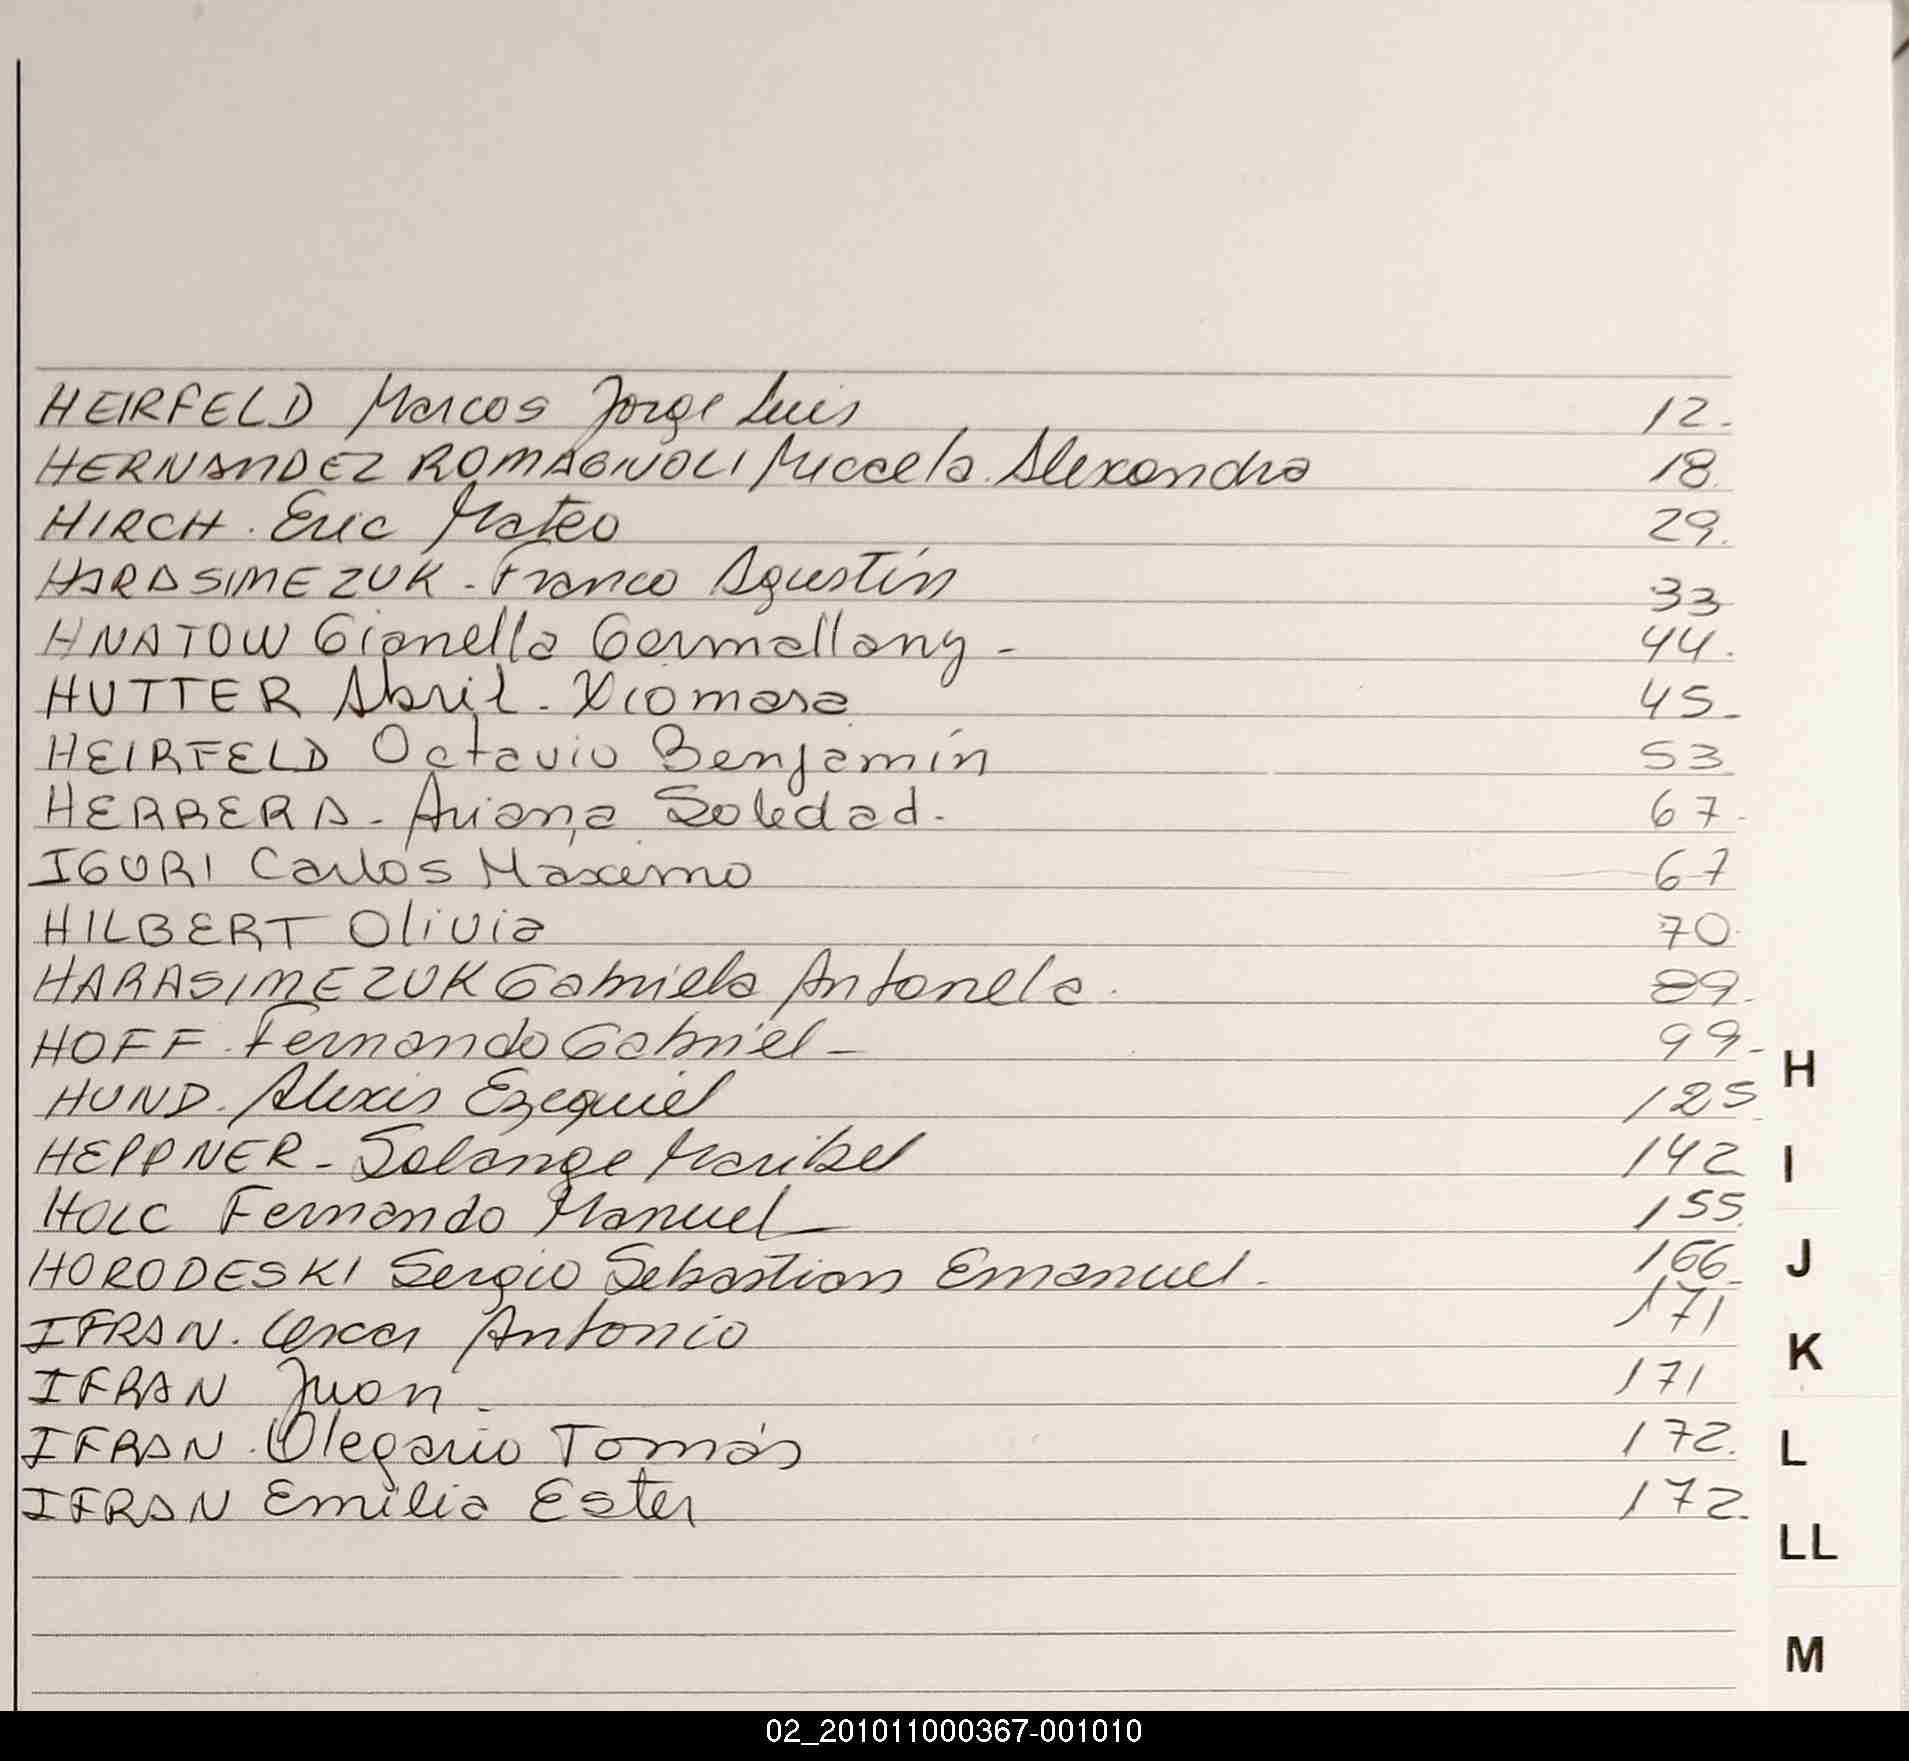 HEIRFELD Marcos Jorge Luis 12.
HERNANDEZ ROMAGNOLI Micaela Alexandra 18.
HIRCH. Eric Mateo 29.
HARASIMEZUK - Franco Agustín 33
HNATOW Gianella Germallany - 44.
HUTTER Abril - Xiomara 45-
HEIRFELD Octavio Benjamín 53
HERRERA - Ariana Soledad. 67-
IGURI Carlos Maximo 67
HILBERT Olivia 70.
HARASIMEZUK Gabriela Antonela. 89.
HOFF. Fernando Gabriel - 99-
H
HUND. Alexis Ezequiel 125.
HEPPNER - Solange Maribel 142
I
HOLC Fernando Manuel 155.
HORODESKI Sergio Sebastian Emanuel. 166-
J
IFRAN. Oscar Antonio 171
K
IFRAN Juan - 171
IFRAN. Olegario Tomás 172.
L
IFRAN Emilia Ester 172.
LL
M
02_201011000367-001010